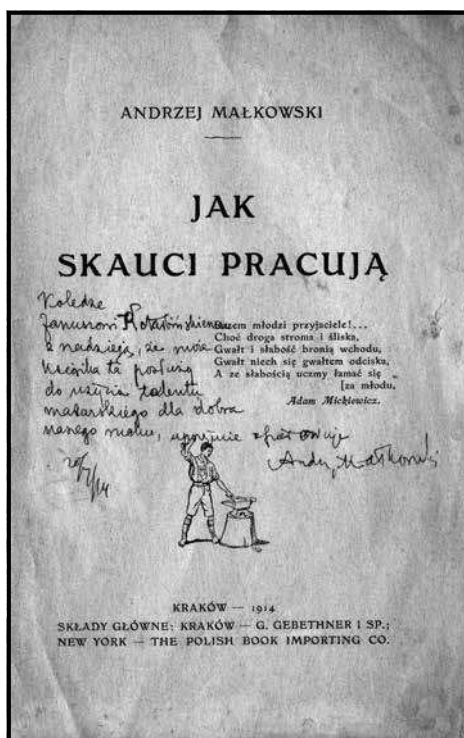 ANDRZEJ MAŁKOWSKI
JAK
SKAUCI PRACUJĄ
Koledze
Januszowi
z nadzieją, że
ta posłuży
do użycia talentu
malarskiego dla dobra
naszego ruchu, uprzejmie ofiarowuje
Andrzej Małkowski
Razem młodzi przyjaciele!...
Choć droga stroma i śliska,
Gwałt i słabość bronią wchodu,
Gwałt niech się gwałtem odciska,
A ze słabością uczmy łamać się
[za młodu,
Adam Mickiewicz.
KRAKÓW — 1914
SKŁADY GŁÓWNE: KRAKÓW — G. GEBETHNER I SP.;
NEW YORK — THE POLISH BOOK IMPORTING CO.